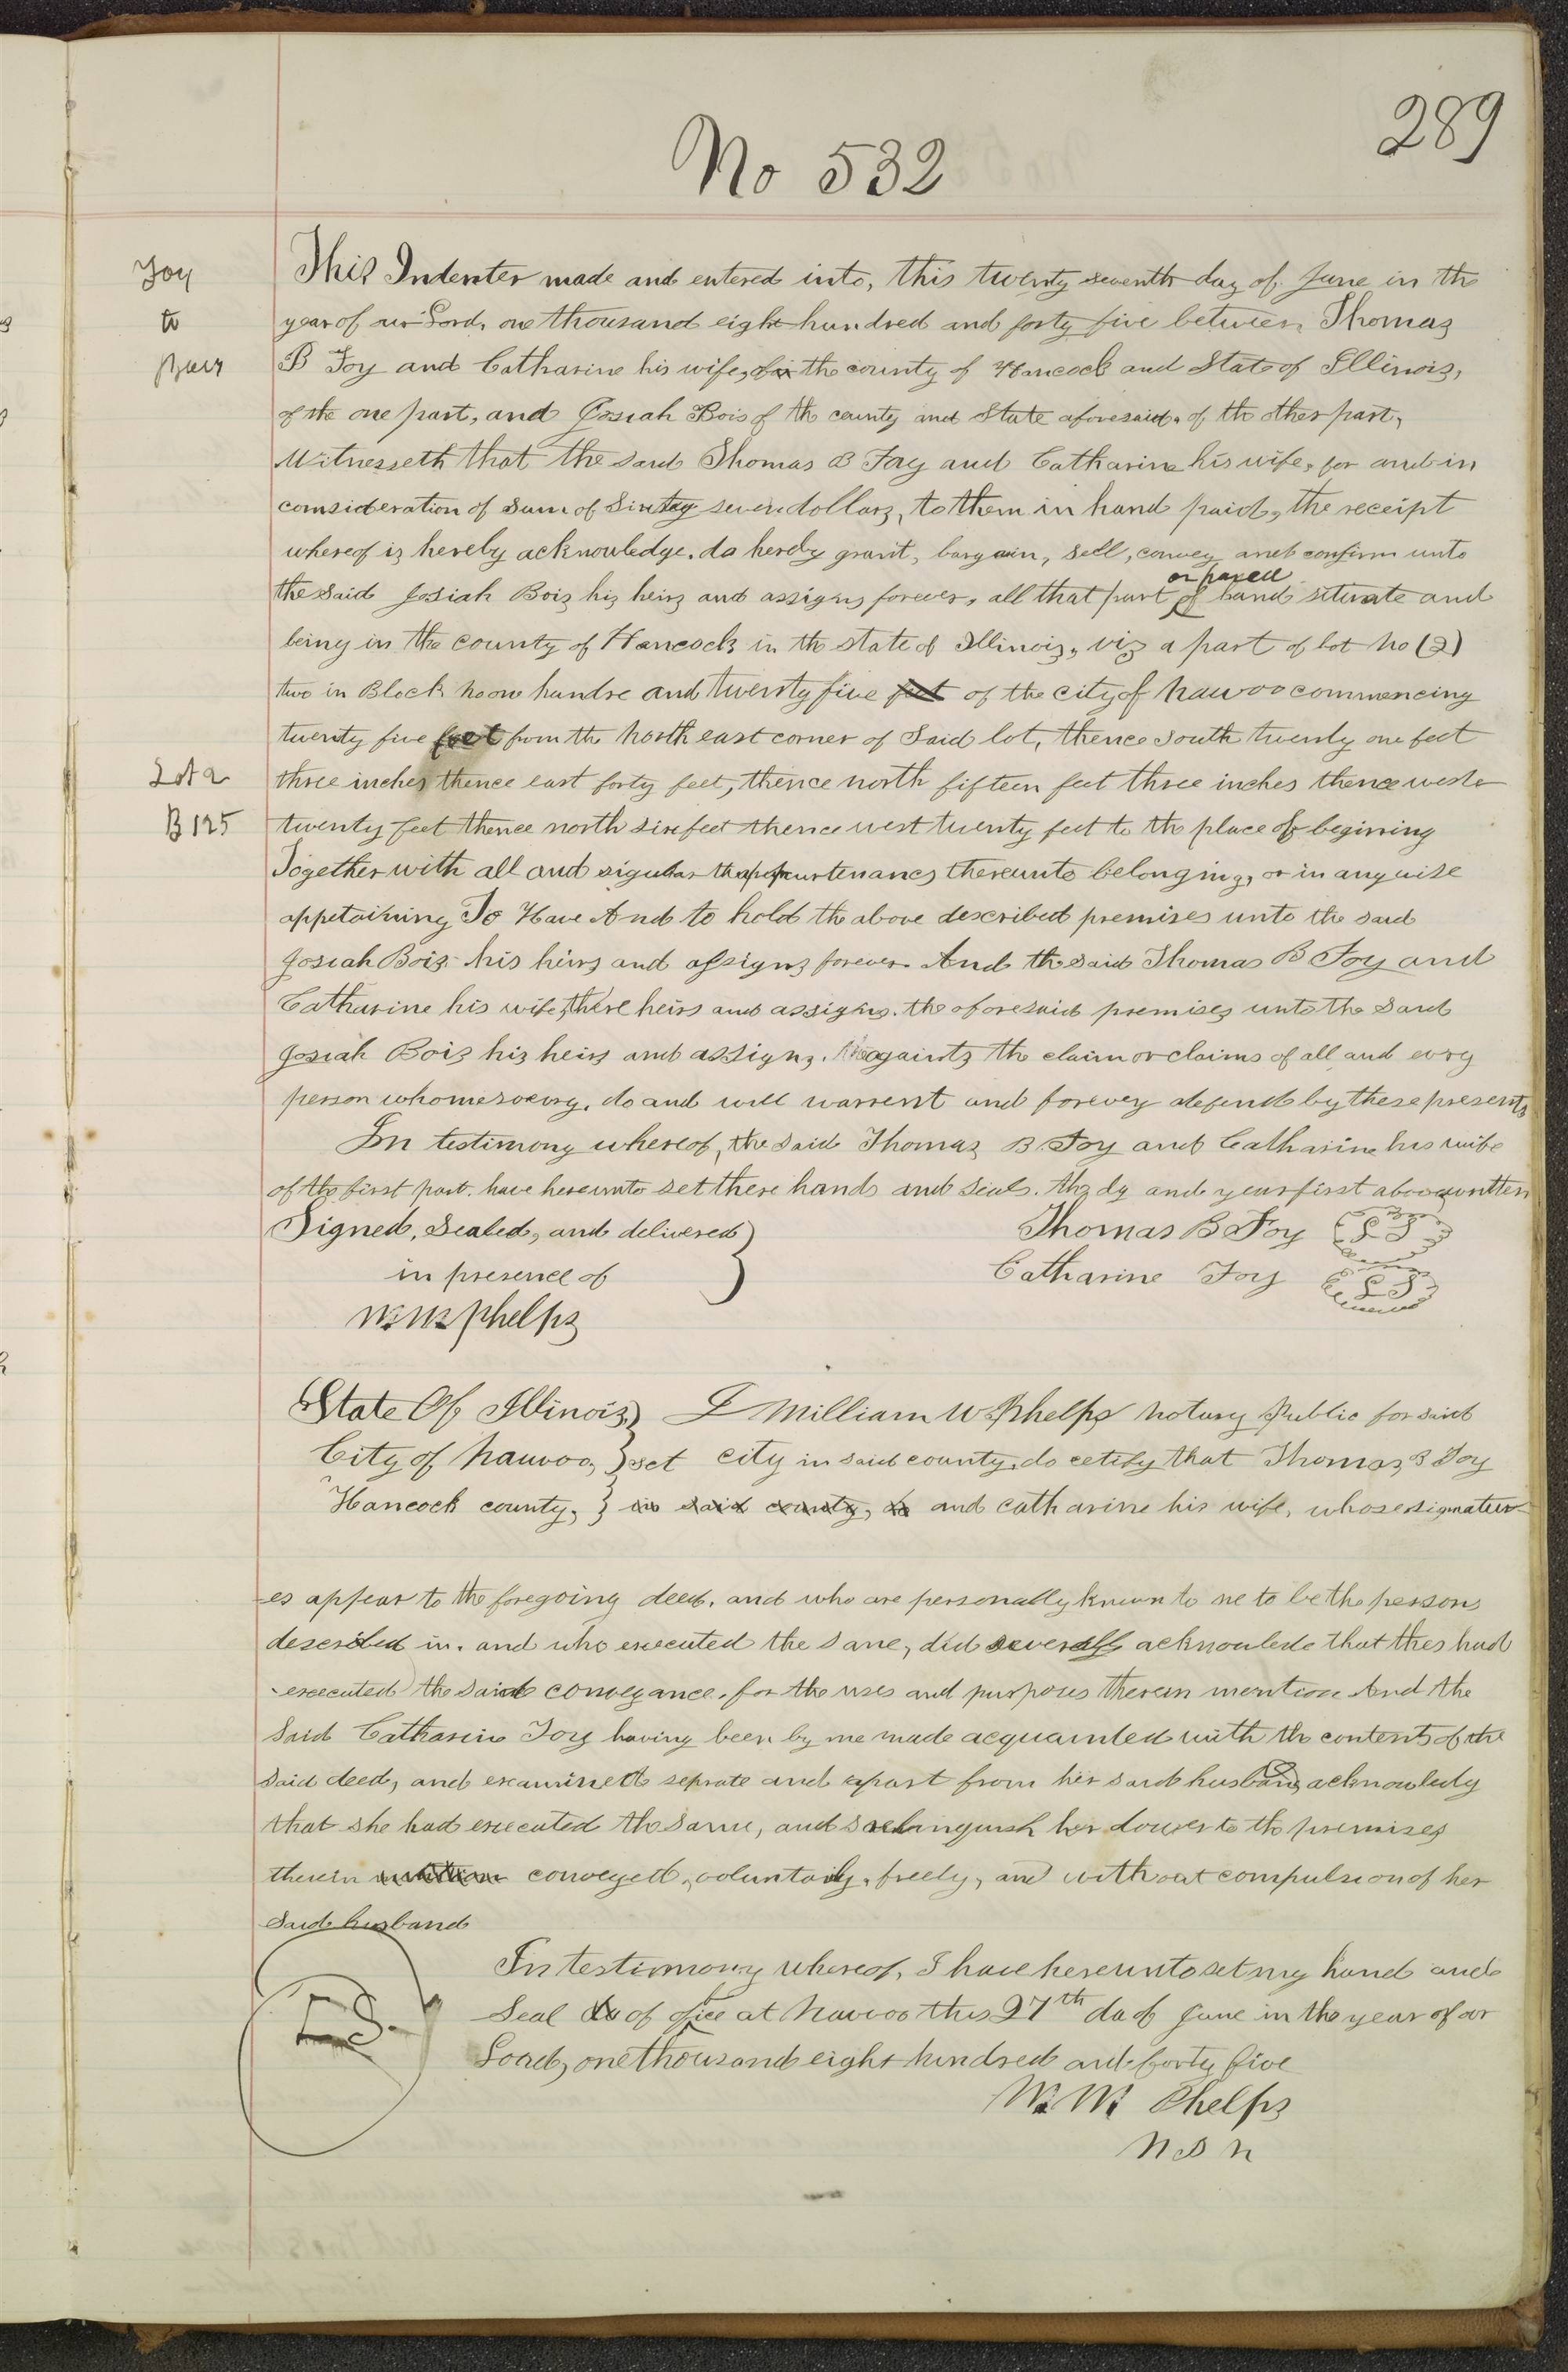 289
No 532
Foy
to
Bois
This Indenter made and entered into, this twenty seventh day of June in the
year of our Lord, one thousand eight hundred and forty five between Thomas
B Foy and Catharine his wife, of the county of Hancock and State of Illinois,
of the one part, and Josiah Bois of the county and State aforesaid. of the other part,
Witnesseth that the said Thomas B Foy and Catharine his wife, for and in
consideration of sum of Sixtey seven dollars, to them in hand paid, the receipt
whereof is hereby acknowledge. do hereby grant, bargain, sell, convey and confirm unto
the said Josiah Bois his heirs and assigns forever, all that part or parcell of land situate and
being in the county of Hancock in the state of Illinois, viz a part of lot No (2)
two in Block No one hundre and twenty five feet of the city of Nauvoo commencing
twenty five feet from the North east corner of Said lot, thence south twenty one feet
Lot 2
three inches thence east forty feet, thence north fifteen feet three inches thence west
B 125
twenty feet thence north six feet thence west twenty feet to the place of begining
Together with all and sigular the appurtenancs thereunto belonging, or in any wise
appetaining To Have And to hold the above described premises unto the said
Josiah Bois his heirs and assigns forever. And the said Thomas B Foy and
Catharine his wife, there heirs and assigns. the aforesaid premises unto the said
Josiah Bois his heirs and assigns. againts the claim or claims of all and evry
person whomesoevry, do and will warrent and forevey defend by these presents
In testimony whereof, the said Thomas B Foy and Catharine his wife
of the first part. have hereunto set there hands and seals. the dy and year first above written
Signed, Sealed, and delivered
in presence of
W. W. Phelps
Thomas B Foy L S
Catharine Foy L S
State Of Illinois I William W. Phelps Notary Public for said
City of Nauvoo, } sct city in said county, do cetify that Thomas B Foy
Hancock county, } in said county, do and catharine his wife, whose signatur
es appear to the foregoing deed, and who are personally known to me to be the persons
described in. and who executed the same, did severally acknowlede that thes had
executed the said conveyance. for the uses and purposes therein mention And the
said Catharine Foy having been by me made acquainted with the contents of the
said deed, and examined seprate and apart from her said husband, acknowledg
that she had executed the same, and relinquish her dower to the premises
therein mention conveyed, voluntarily, freely, and without compulsion of her
said husband
In testimony whereof, I have hereunto set my hand and
L S.
Seal do of office at Nauvoo this 27th da of June in the year of our
Loard, one thousand eight hundred and forty five
W. W. Phelps
N P N